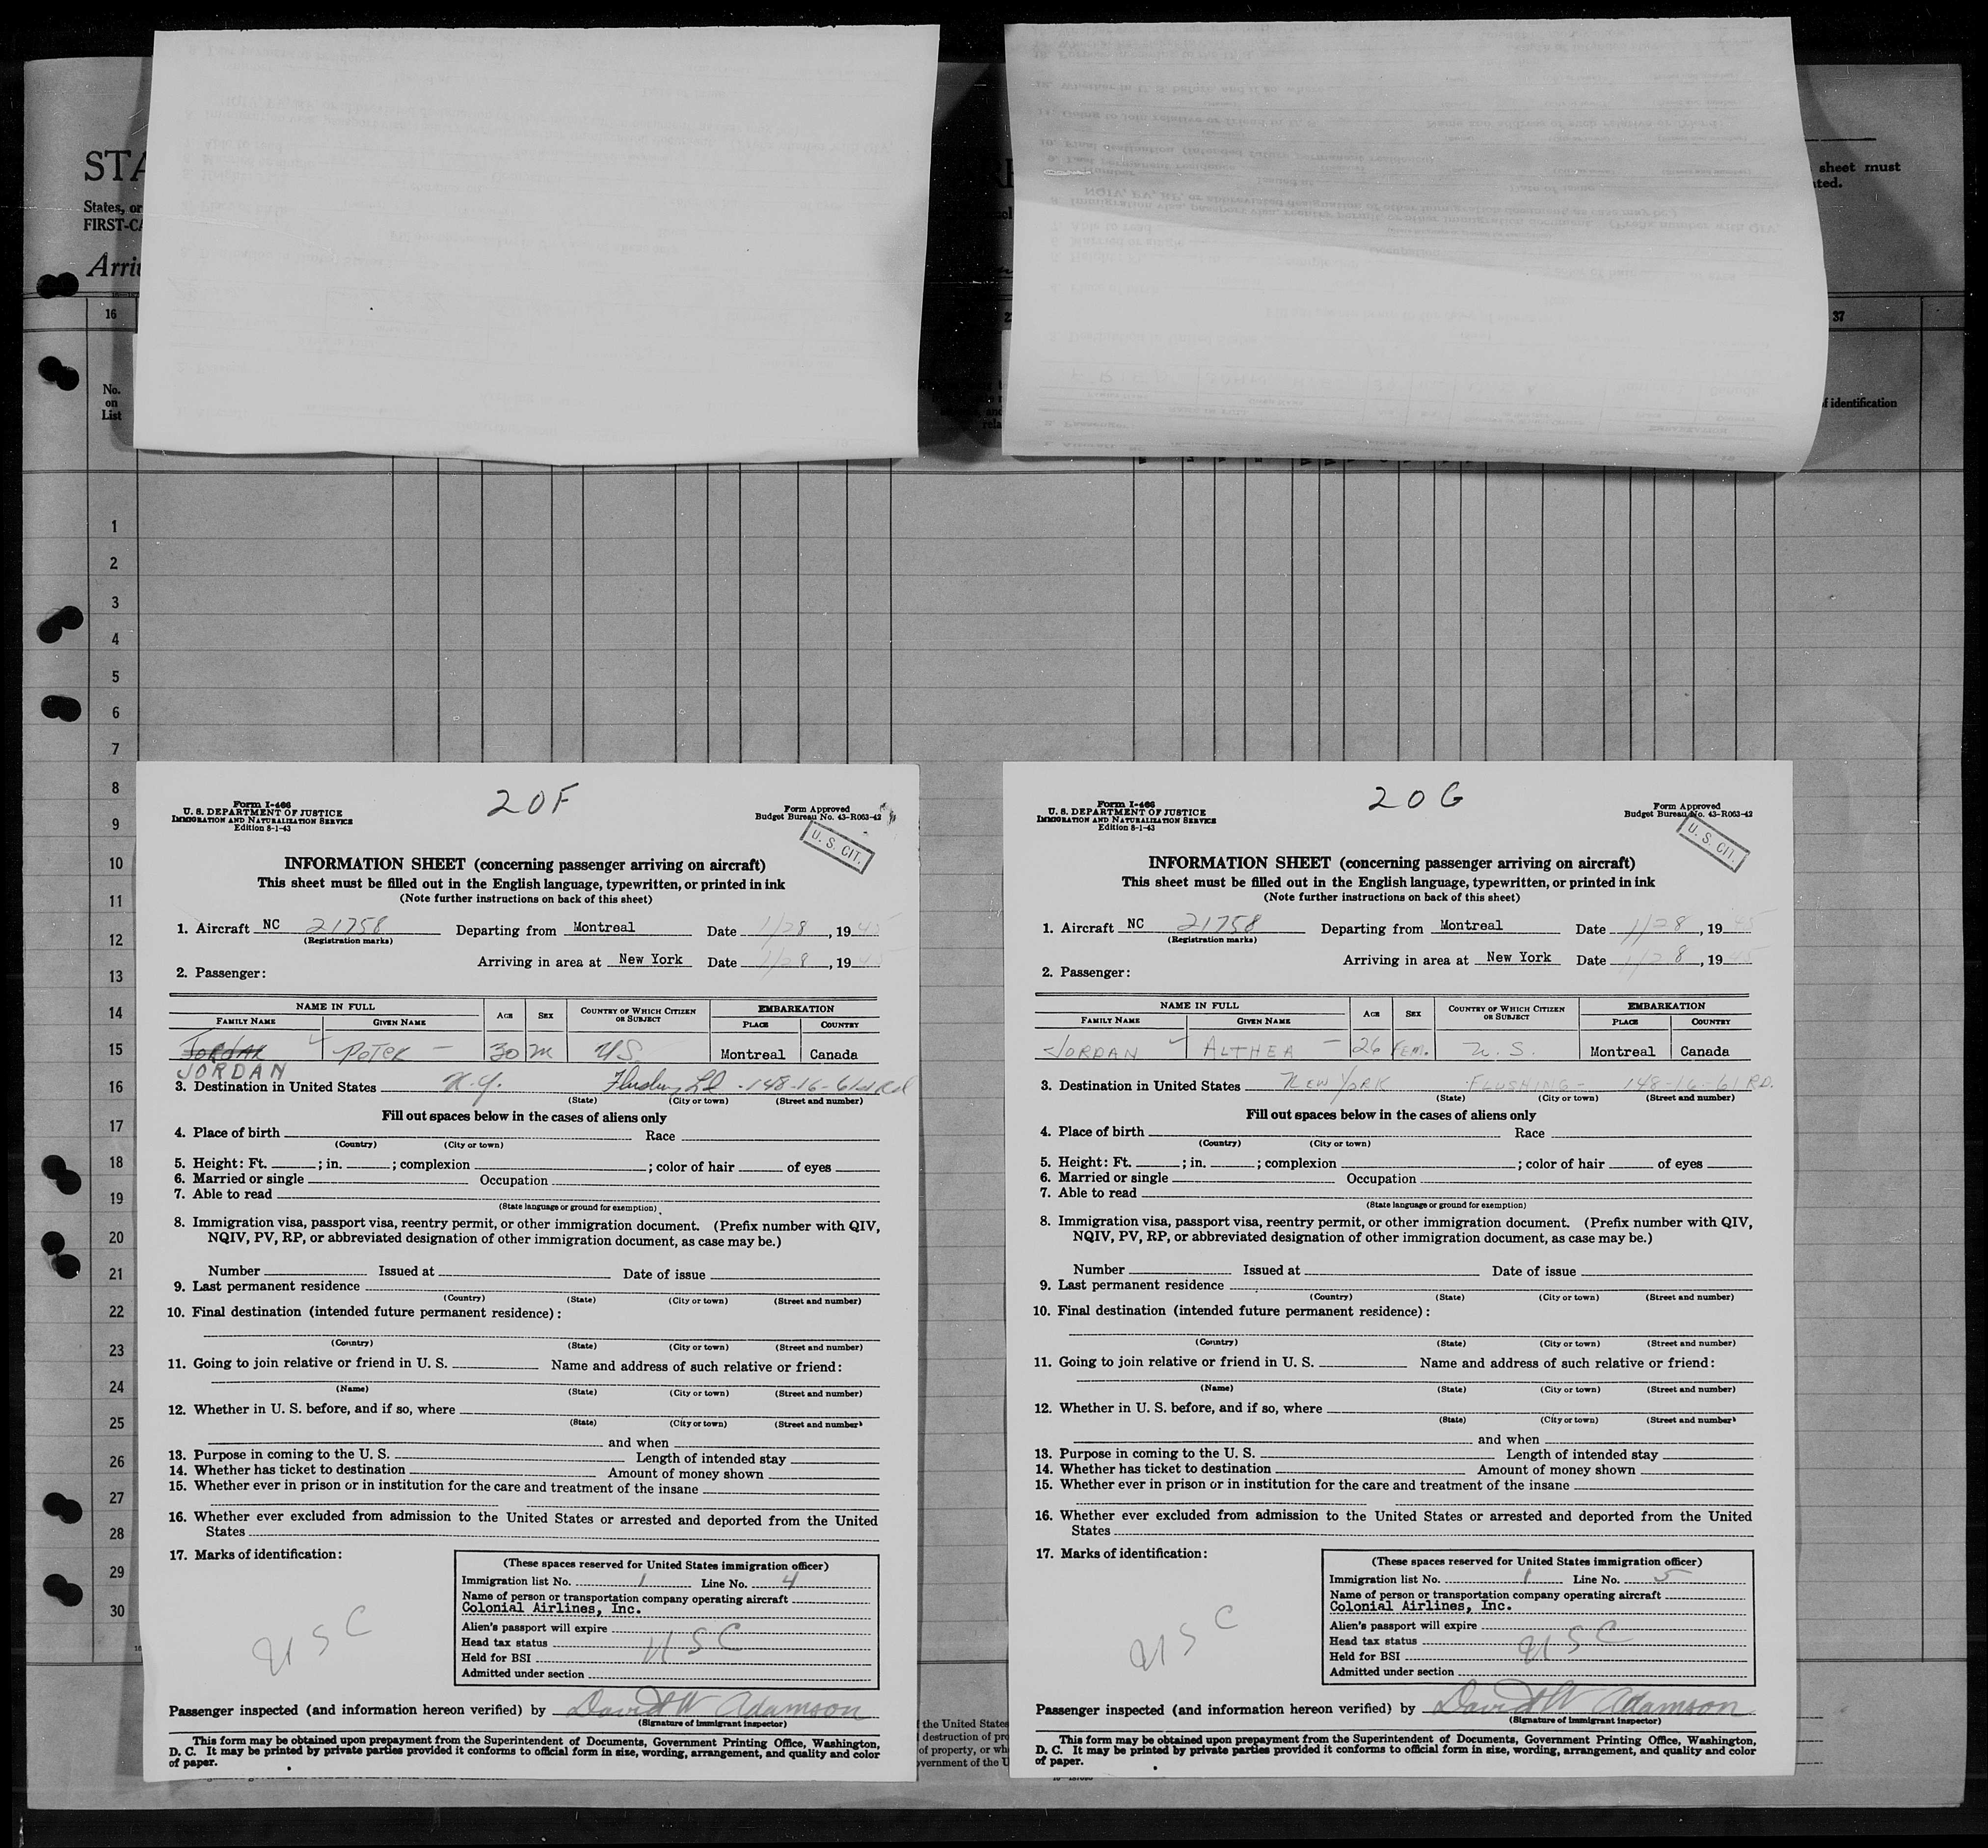 STA
States, or
FIRST-CA
Arri
sheet must
ted.
16
37
No.
on
List
f identification
1
2
3
4
5
6
7
8
9
10
11
12
13
14
15
16
17
18
19
20
21
22
23
24
25
26
27
28
29
30
20F
Form I-466
U. S. DEPARTMENT OF JUSTICE
IMMIGRATION AND NATURALIZATION SERVICE
Edition 8-1-43
Form Approved
Budget Bureau No. 43-R063-42
U. S. CIT.
INFORMATION SHEET (concerning passenger arriving on aircraft)
This sheet must be filled out in the English language, typewritten, or printed in ink
(Note further instructions on back of this sheet)
1. Aircraft NC 21758 Departing from Montreal Date 1/28, 1945
(Registration marks)
Arriving in area at New York Date 1/28, 1945
2. Passenger:
NAME IN FULL AGE SEX COUNTRY OF WHICH CITIZEN OR SUBJECT EMBARKATION
FAMILY NAME GIVEN NAME PLACE COUNTRY
JORDAN PETER - 30 M U.S. Montreal Canada
JORDAN
3. Destination in United States N.Y. Flushing LI - 148-16-61st Rd
(State) (City or town) (Street and number)
Fill out spaces below in the cases of aliens only
4. Place of birth Race
(Country) (City or town)
5. Height: Ft. ; in. ; complexion ; color of hair of eyes
6. Married or single Occupation
7. Able to read
(State language or ground for exemption)
8. Immigration visa, passport visa, reentry permit, or other immigration document. (Prefix number with QIV,
NQIV, PV, RP, or abbreviated designation of other immigration document, as case may be.)
Number Issued at Date of issue
9. Last permanent residence
(Country) (State) (City or town) (Street and number)
10. Final destination (intended future permanent residence):
(Country) (State) (City or town) (Street and number)
11. Going to join relative or friend in U. S. Name and address of such relative or friend:
(Name) (State) (City or town) (Street and number)
12. Whether in U. S. before, and if so, where
(State) (City or town) (Street and number)
and when
13. Purpose in coming to the U. S. Length of intended stay
14. Whether has ticket to destination Amount of money shown
15. Whether ever in prison or in institution for the care and treatment of the insane
16. Whether ever excluded from admission to the United States or arrested and deported from the United
States
17. Marks of identification:
(These spaces reserved for United States immigration officer)
Immigration list No. 1 Line No. 4
Name of person or transportation company operating aircraft
Colonial Airlines, Inc.
Alien's passport will expire
Head tax status USC
Held for BSI
Admitted under section
USC
Passenger inspected (and information hereon verified) by David W Adamson
(Signature of immigrant inspector)
This form may be obtained upon prepayment from the Superintendent of Documents, Government Printing Office, Washington,
D. C. It may be printed by private parties provided it conforms to official form in size, wording, arrangement, and quality and color
of paper.
the United States
destruction of pro
of property, or wh
vernment of the U
20G
Form I-466
U. S. DEPARTMENT OF JUSTICE
IMMIGRATION AND NATURALIZATION SERVICE
Edition 8-1-43
Form Approved
Budget Bureau No. 43-R063-42
U. S. CIT.
INFORMATION SHEET (concerning passenger arriving on aircraft)
This sheet must be filled out in the English language, typewritten, or printed in ink
(Note further instructions on back of this sheet)
1. Aircraft NC 21758 Departing from Montreal Date 1/28, 1945
(Registration marks)
Arriving in area at New York Date 1/28, 1945
2. Passenger:
NAME IN FULL AGE SEX COUNTRY OF WHICH CITIZEN OR SUBJECT EMBARKATION
FAMILY NAME GIVEN NAME PLACE COUNTRY
JORDAN ALTHEA - 26 FEM. U. S. Montreal Canada
3. Destination in United States NEW YORK FLUSHING - 148-16-61 RD.
(State) (City or town) (Street and number)
Fill out spaces below in the cases of aliens only
4. Place of birth Race
(Country) (City or town)
5. Height: Ft. ; in. ; complexion ; color of hair of eyes
6. Married or single Occupation
7. Able to read
(State language or ground for exemption)
8. Immigration visa, passport visa, reentry permit, or other immigration document. (Prefix number with QIV,
NQIV, PV, RP, or abbreviated designation of other immigration document, as case may be.)
Number Issued at Date of issue
9. Last permanent residence
(Country) (State) (City or town) (Street and number)
10. Final destination (intended future permanent residence):
(Country) (State) (City or town) (Street and number)
11. Going to join relative or friend in U. S. Name and address of such relative or friend:
(Name) (State) (City or town) (Street and number)
12. Whether in U. S. before, and if so, where
(State) (City or town) (Street and number)
and when
13. Purpose in coming to the U. S. Length of intended stay
14. Whether has ticket to destination Amount of money shown
15. Whether ever in prison or in institution for the care and treatment of the insane
16. Whether ever excluded from admission to the United States or arrested and deported from the United
States
17. Marks of identification:
(These spaces reserved for United States immigration officer)
Immigration list No. 1 Line No. 5
Name of person or transportation company operating aircraft
Colonial Airlines, Inc.
Alien's passport will expire
Head tax status USC
Held for BSI
Admitted under section
USC
Passenger inspected (and information hereon verified) by David W Adamson
(Signature of immigrant inspector)
This form may be obtained upon prepayment from the Superintendent of Documents, Government Printing Office, Washington,
D. C. It may be printed by private parties provided it conforms to official form in size, wording, arrangement, and quality and color
of paper.